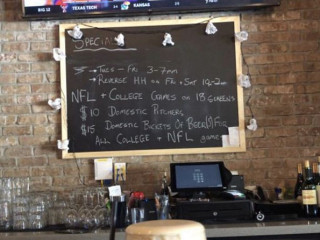 TEXAS TECH
KANSAS
BIG 12
SPECIALS
TUES - FRI 3-7PM
REVERSE HH FRI + SAT 12-2AM
NFL + COLLEGE GAMES ON 18 SCREENS
$10 DOMESTIC PITCHERS
$15 DOMESTIC BUCKETS OF BEER FOR
ALL COLLEGE + NFL GAMES